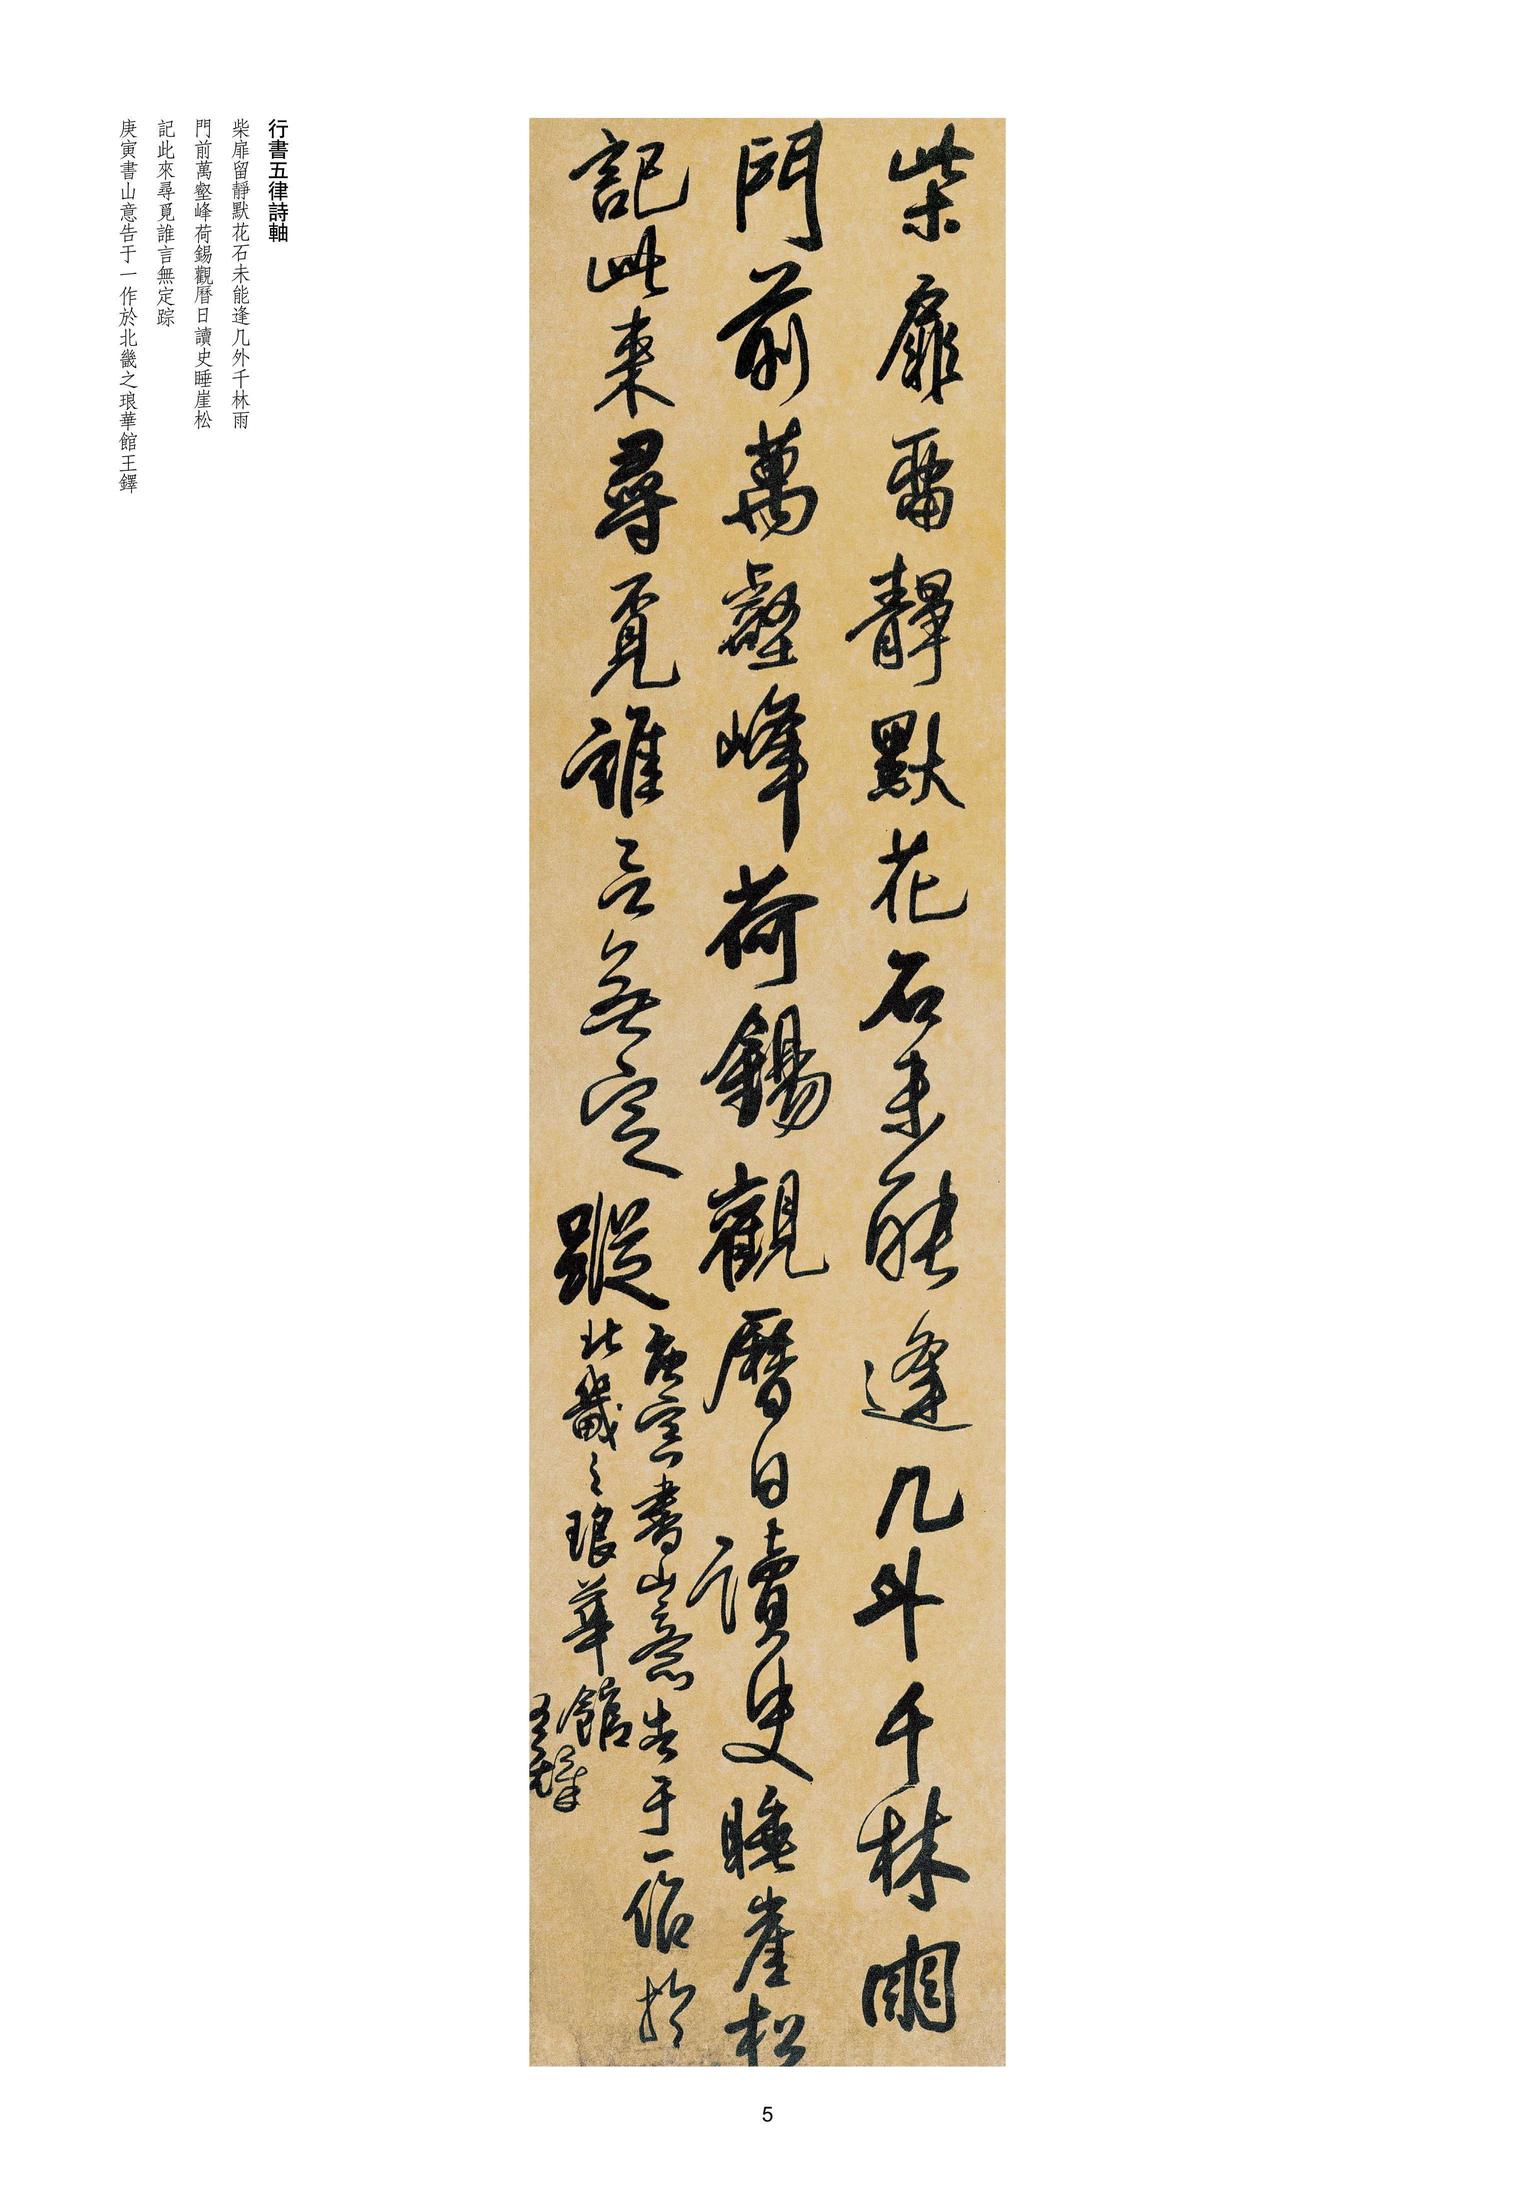 行書五律詩軸
柴扉留靜默花石未能逢几外千林雨
門前萬壑峰荷錫觀曆日讀史睡崖松
記此來尋覓誰言無定踪
庚寅書山意告于一作於北畿之琅華館王鐸
柴扉留靜默花石未能逢几外千林雨
門前萬壑峰荷錫觀曆日讀史睡崖松
記此来尋覓誰言無定蹤
庚寅書山意告于一作於
北畿之琅華館
王鐸
5